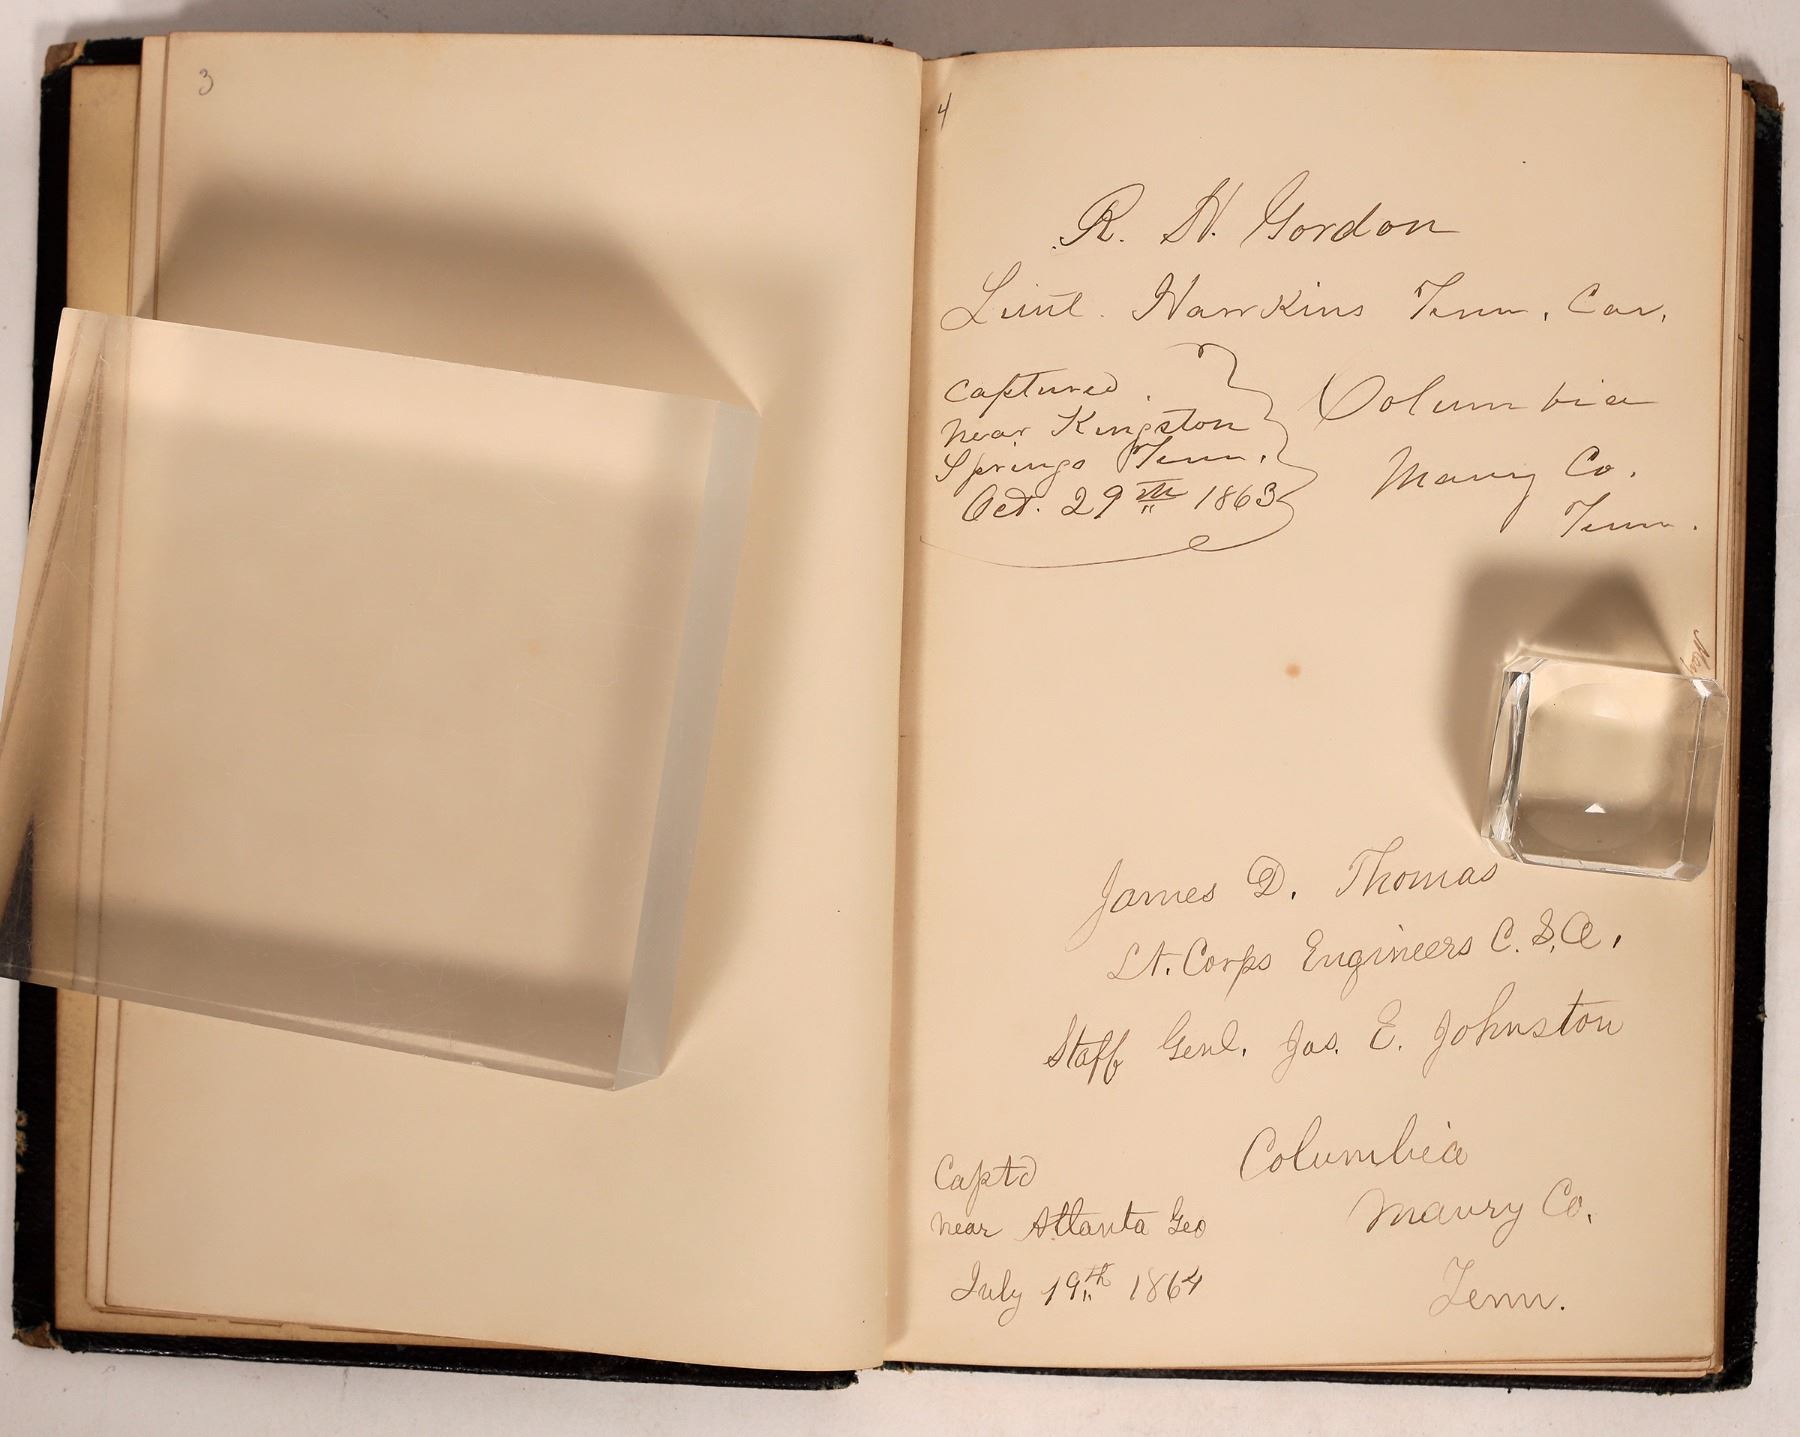 3
4
R. H. Gordon
Lieut. Hawkins Tenn. Cav.
Captured
near Kingston
Springs Tenn.
Oct. 29th 1863
Columbia
Maury Co.
Tenn.
James D. Thomas
Lt. Corps Engineers C.S.A.
Staff Genl. Jos. E. Johnston
Captd
near Atlanta Geo
July 19th 1864
Columbia
Maury Co.
Tenn.